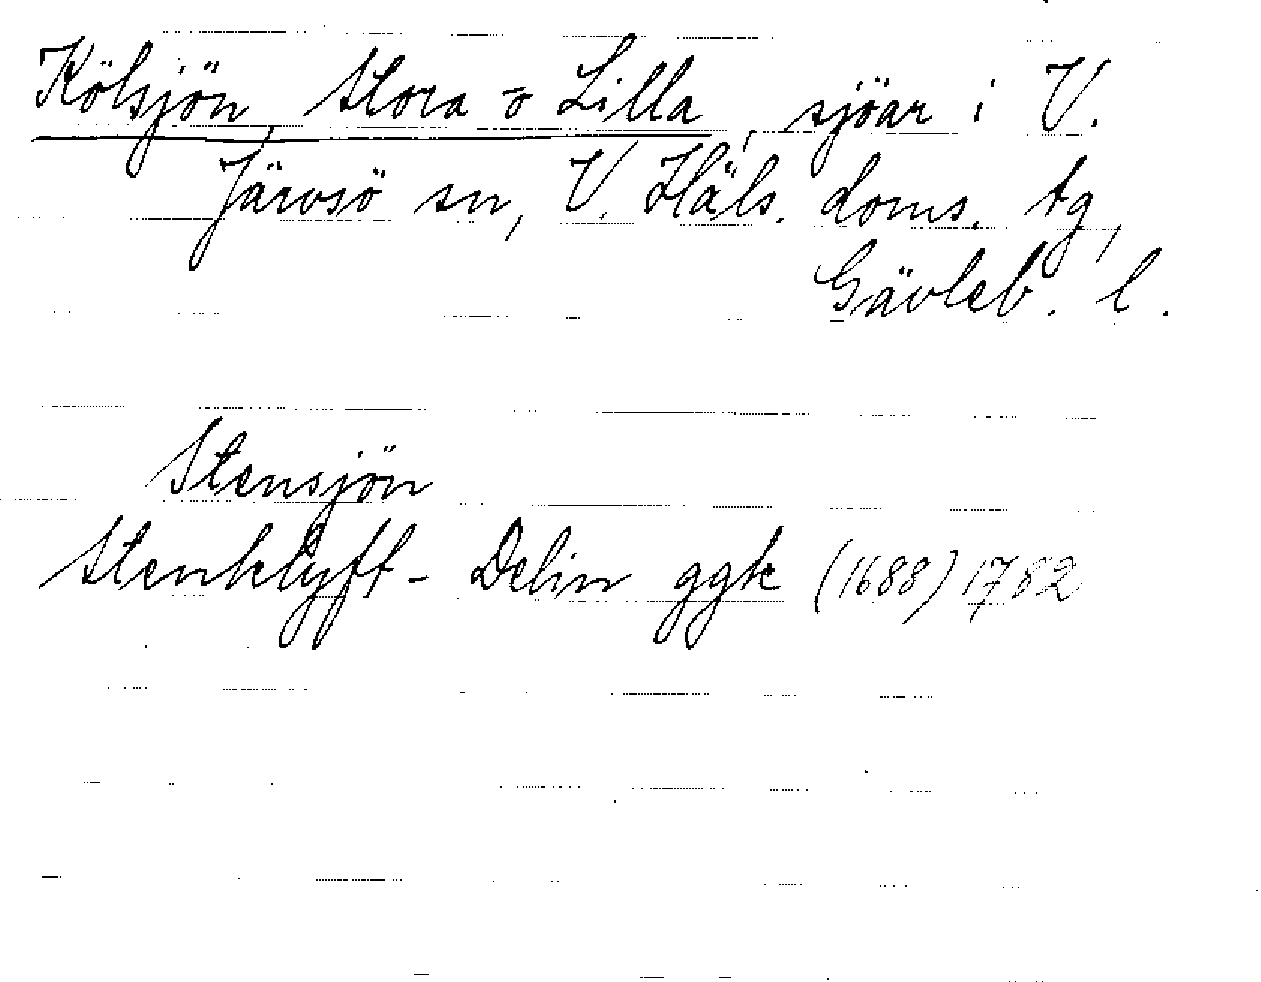 Kölsjön, Stora o Lilla, sjöar i V.
Järvsö sn, V. Häls. doms. tg,
Gävleb. l.
Stensjön
Stenklyft- Delin ggk (1688) 1782